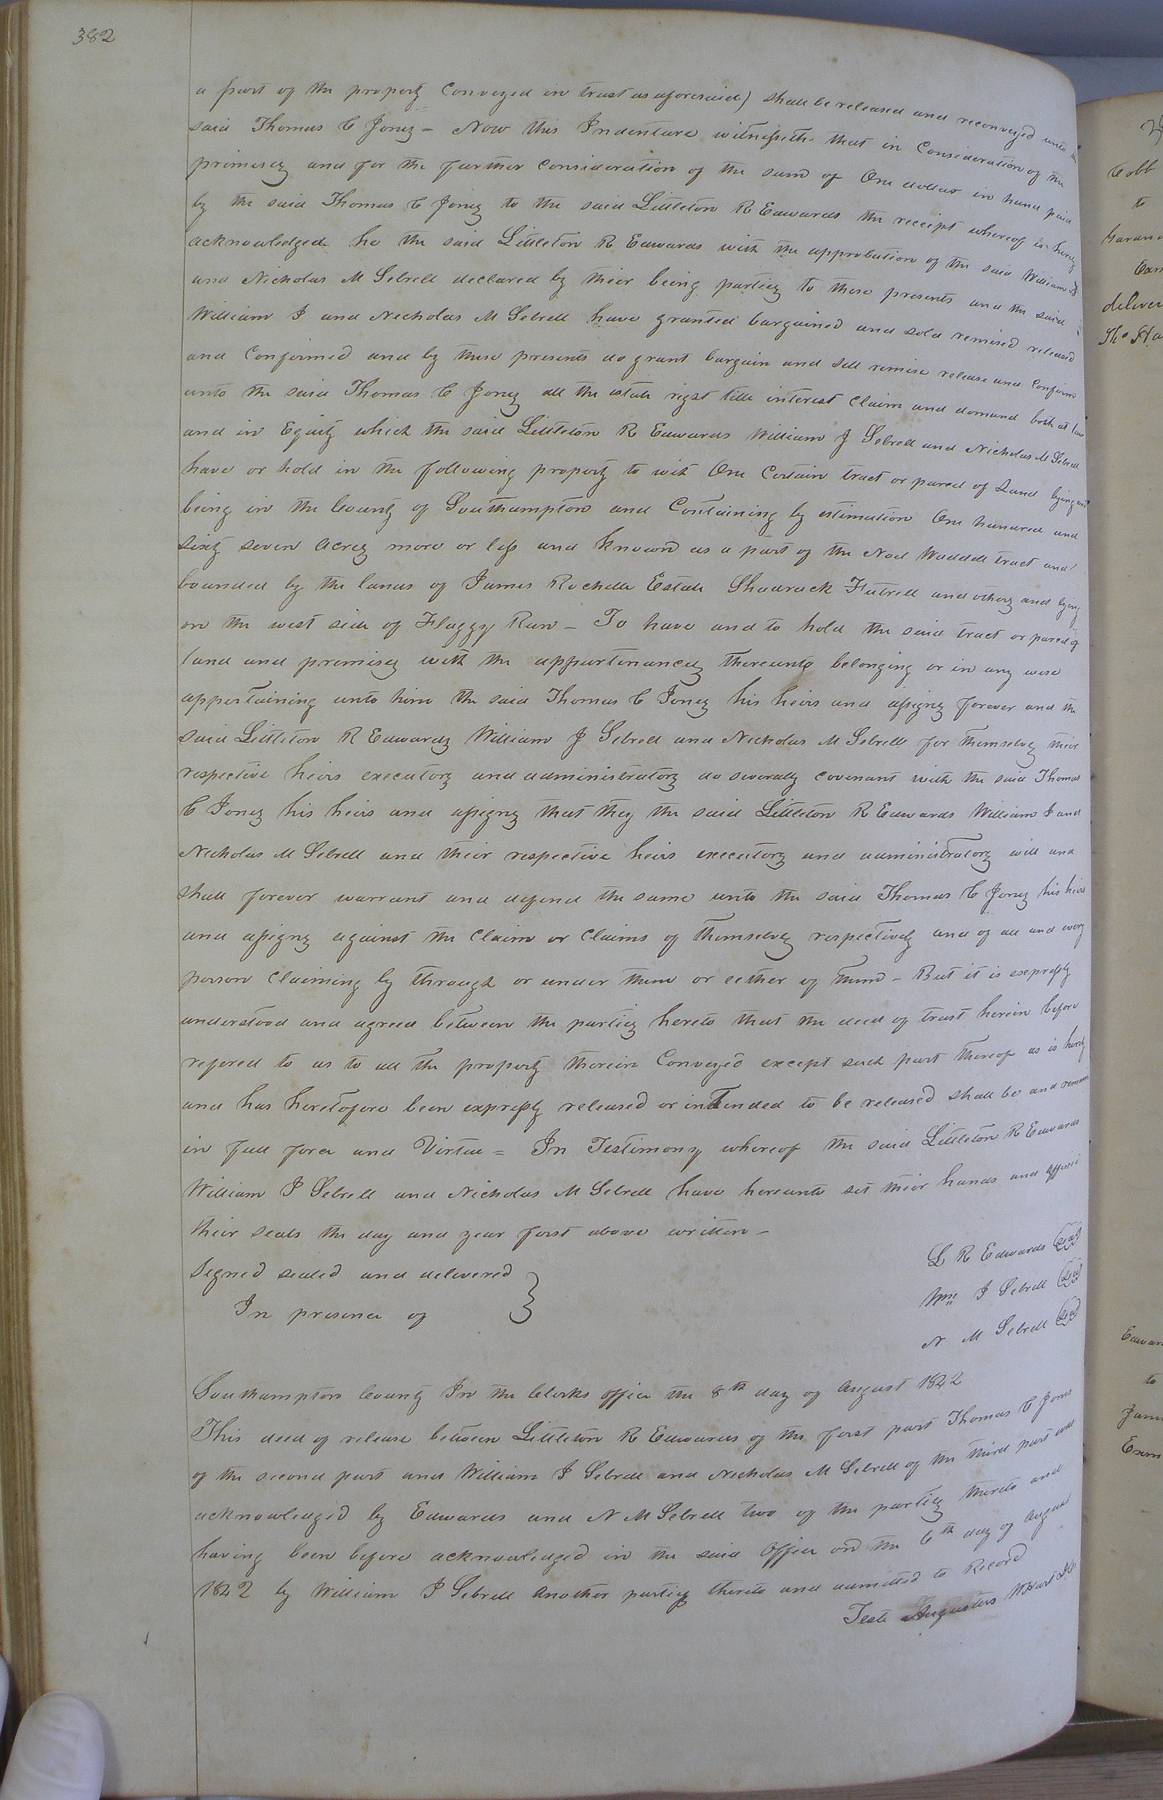 382
a part of the property Conveyed in trust as aforesaid) shall be released and reconveyed unto the
said Thomas C Jones - Now this Indenture witnesseth that in Consideration of the
premises and for the further Consideration of the sum of One dollar in hand paid
by the said Thomas C Jones to the said Littleton R Edwards the receipt whereof is hereby
acknowledged he the said Littleton R Edwards with the approbation of the said William J
and Nicholas M Sebrell declared by their being parties to these presents and the said
William J and Nicholas M Sebrell have granted bargained and sold remised released
and Confirmed and by these presents do grant bargain and sell remise release and Confirm
unto the said Thomas C Jones all the estate right title interest Claim and demand both at law
and in Equity which the said Littleton R Edwards William J Sebrell and Nicholas M Sebrell
have or hold in the following property to wit One Certain tract or parcel of Land lying and
being in the County of Southampton and Containing by estimation One hundred and
sixty seven Acres more or less and known as a part of the Noel Waddell tract and
bounded by the lands of James Rochelle Estate Shadrack Futrell and others and lying
on the west side of Flaggy Run - To have and to hold the said tract or parcel of
land and premises with the appurtenances thereunto belonging or in any wise
appertaining unto him the said Thomas C Jones his heirs and assigns forever and the
said Littleton R Edwards William J Sebrell and Nicholas M Sebrell for themselves their
respective heirs executors and administrators do severally covenant with the said Thomas
C Jones his heirs and assigns that they the said Littleton R Edwards William J and
Nicholas M Sebrell and their respective heirs executors and administrators will and
shall forever warrant and defend the same unto the said Thomas C Jones his heirs
and assigns against the Claim or Claims of themselves respectively and of all and every
person Claiming by through or under them or either of them - But it is expressly
understood and agreed between the parties hereto that the deed of trust herein before
refered to as to all the property therein Conveyed except such part thereof as is hereby
and has heretofore been expressly released or intended to be released shall be and remain
in full force and Virtue = In Testimony whereof the said Littleton R Edwards
William J Sebrell and Nicholas M Sebrell have hereunto set their hands and affixed
their seals the day and year first above written -
Signed sealed and delivered }
In presence of
L R Edwards (Seal)
Wm J Sebrell (Seal)
N M Sebrell (Seal)
Southampton County In the Clerks office the 8th day of August 1842
This deed of release between Littleton R Edwards of the first part Thomas C Jones
of the second part and William J Sebrell and Nicholas M Sebrell of the third part was
acknowledged by Edwards and N M Sebrell two of the parties thereto and
having been before acknowledged in the said Office on the 6th day of August
1842 by William J Sebrell Another parties thereto and admitted to Record
Teste Augustus
Cobb
to
deliver
to